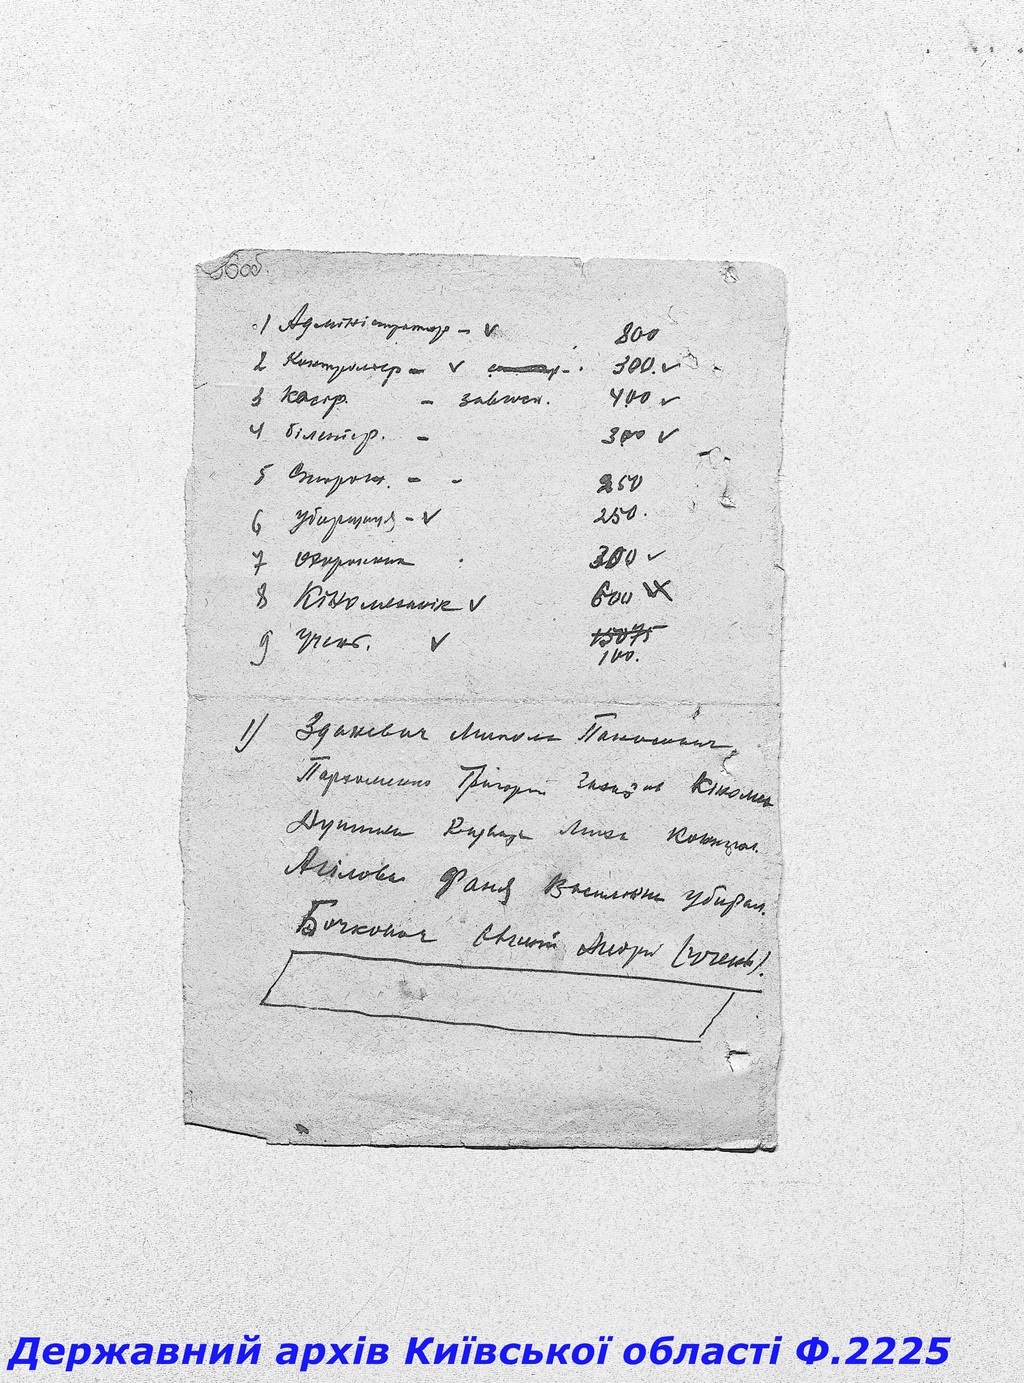 1 Адміністратор - v 800
2 Контрольор - v 300. v
3 Касір. - завгосп. 400 v
4 білетер. - 300 v
5 Сторож. - - 250
6 Убиральниця - v 250.
7 Охоронник 300 v
8 Кіномеханік v 600
9 учень. v 15075
100.
1) Зданевич Микола Панасович
Пархоменко Григорій Кіномех
Лиза Контрол.
Агілова Фаня Василівна убирал.
Бочковач Євгеній Андрій (учень).
Державний архів Київської області Ф.2225